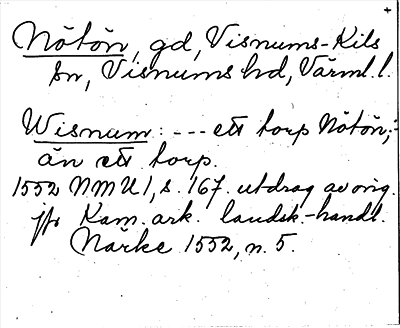 Nötön, gd, Visnums-Kils
sn, Visnums hd, Värml. l.
Wisnum: --- ett torp Nötön;
än ett torp.
1552 NMU 1, s. 167. utdrag av orig.
jfr Kam. ark. landsk.-handl.
Närke 1552, n. 5.